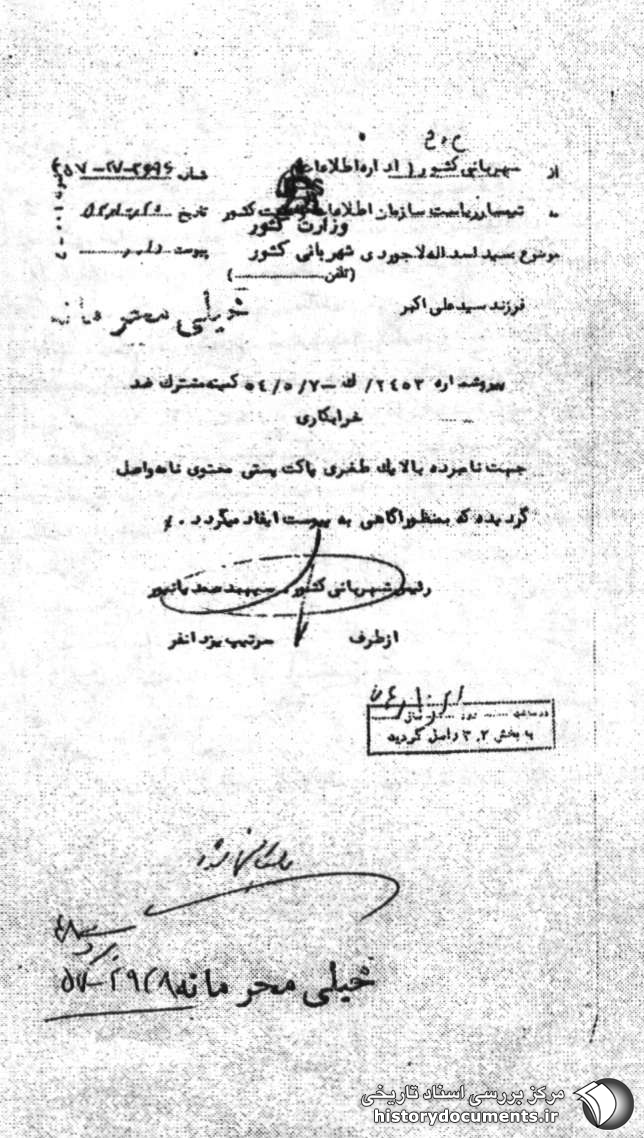 از شهربانی کشور (اداره اطلاعات) شماره
به تیمسار ریاست سازمان اطلاعات و امنیت کشور تاریخ
وزارت کشور
موضوع سید اسداله لاجوردی شهربانی کشور پیوست دارد
(تلفن ............)
فرزند سیدعلی اکبر
خیلی محرمانه
پیرو شماره ۲۴۵۳/ ك -۵۴/۵/۷ کمیته مشترک ضد
خرابکاری
جهت نامبرده بالا یك طغری پاکت پستی محتوی نامه واصل
گردیده که بمنظور آگاهی به پیوست ایفاد میگردد ./
رئیس شهربانی کشور . سپهبد صمدیانپور
از طرف سرتیپ یزدانفر
در ساعت ...... روز ......
به بخش ۲، ۳ واصل گردید
خیلی محرمانه
مرکز بررسی اسناد تاریخی
historydocuments.ir